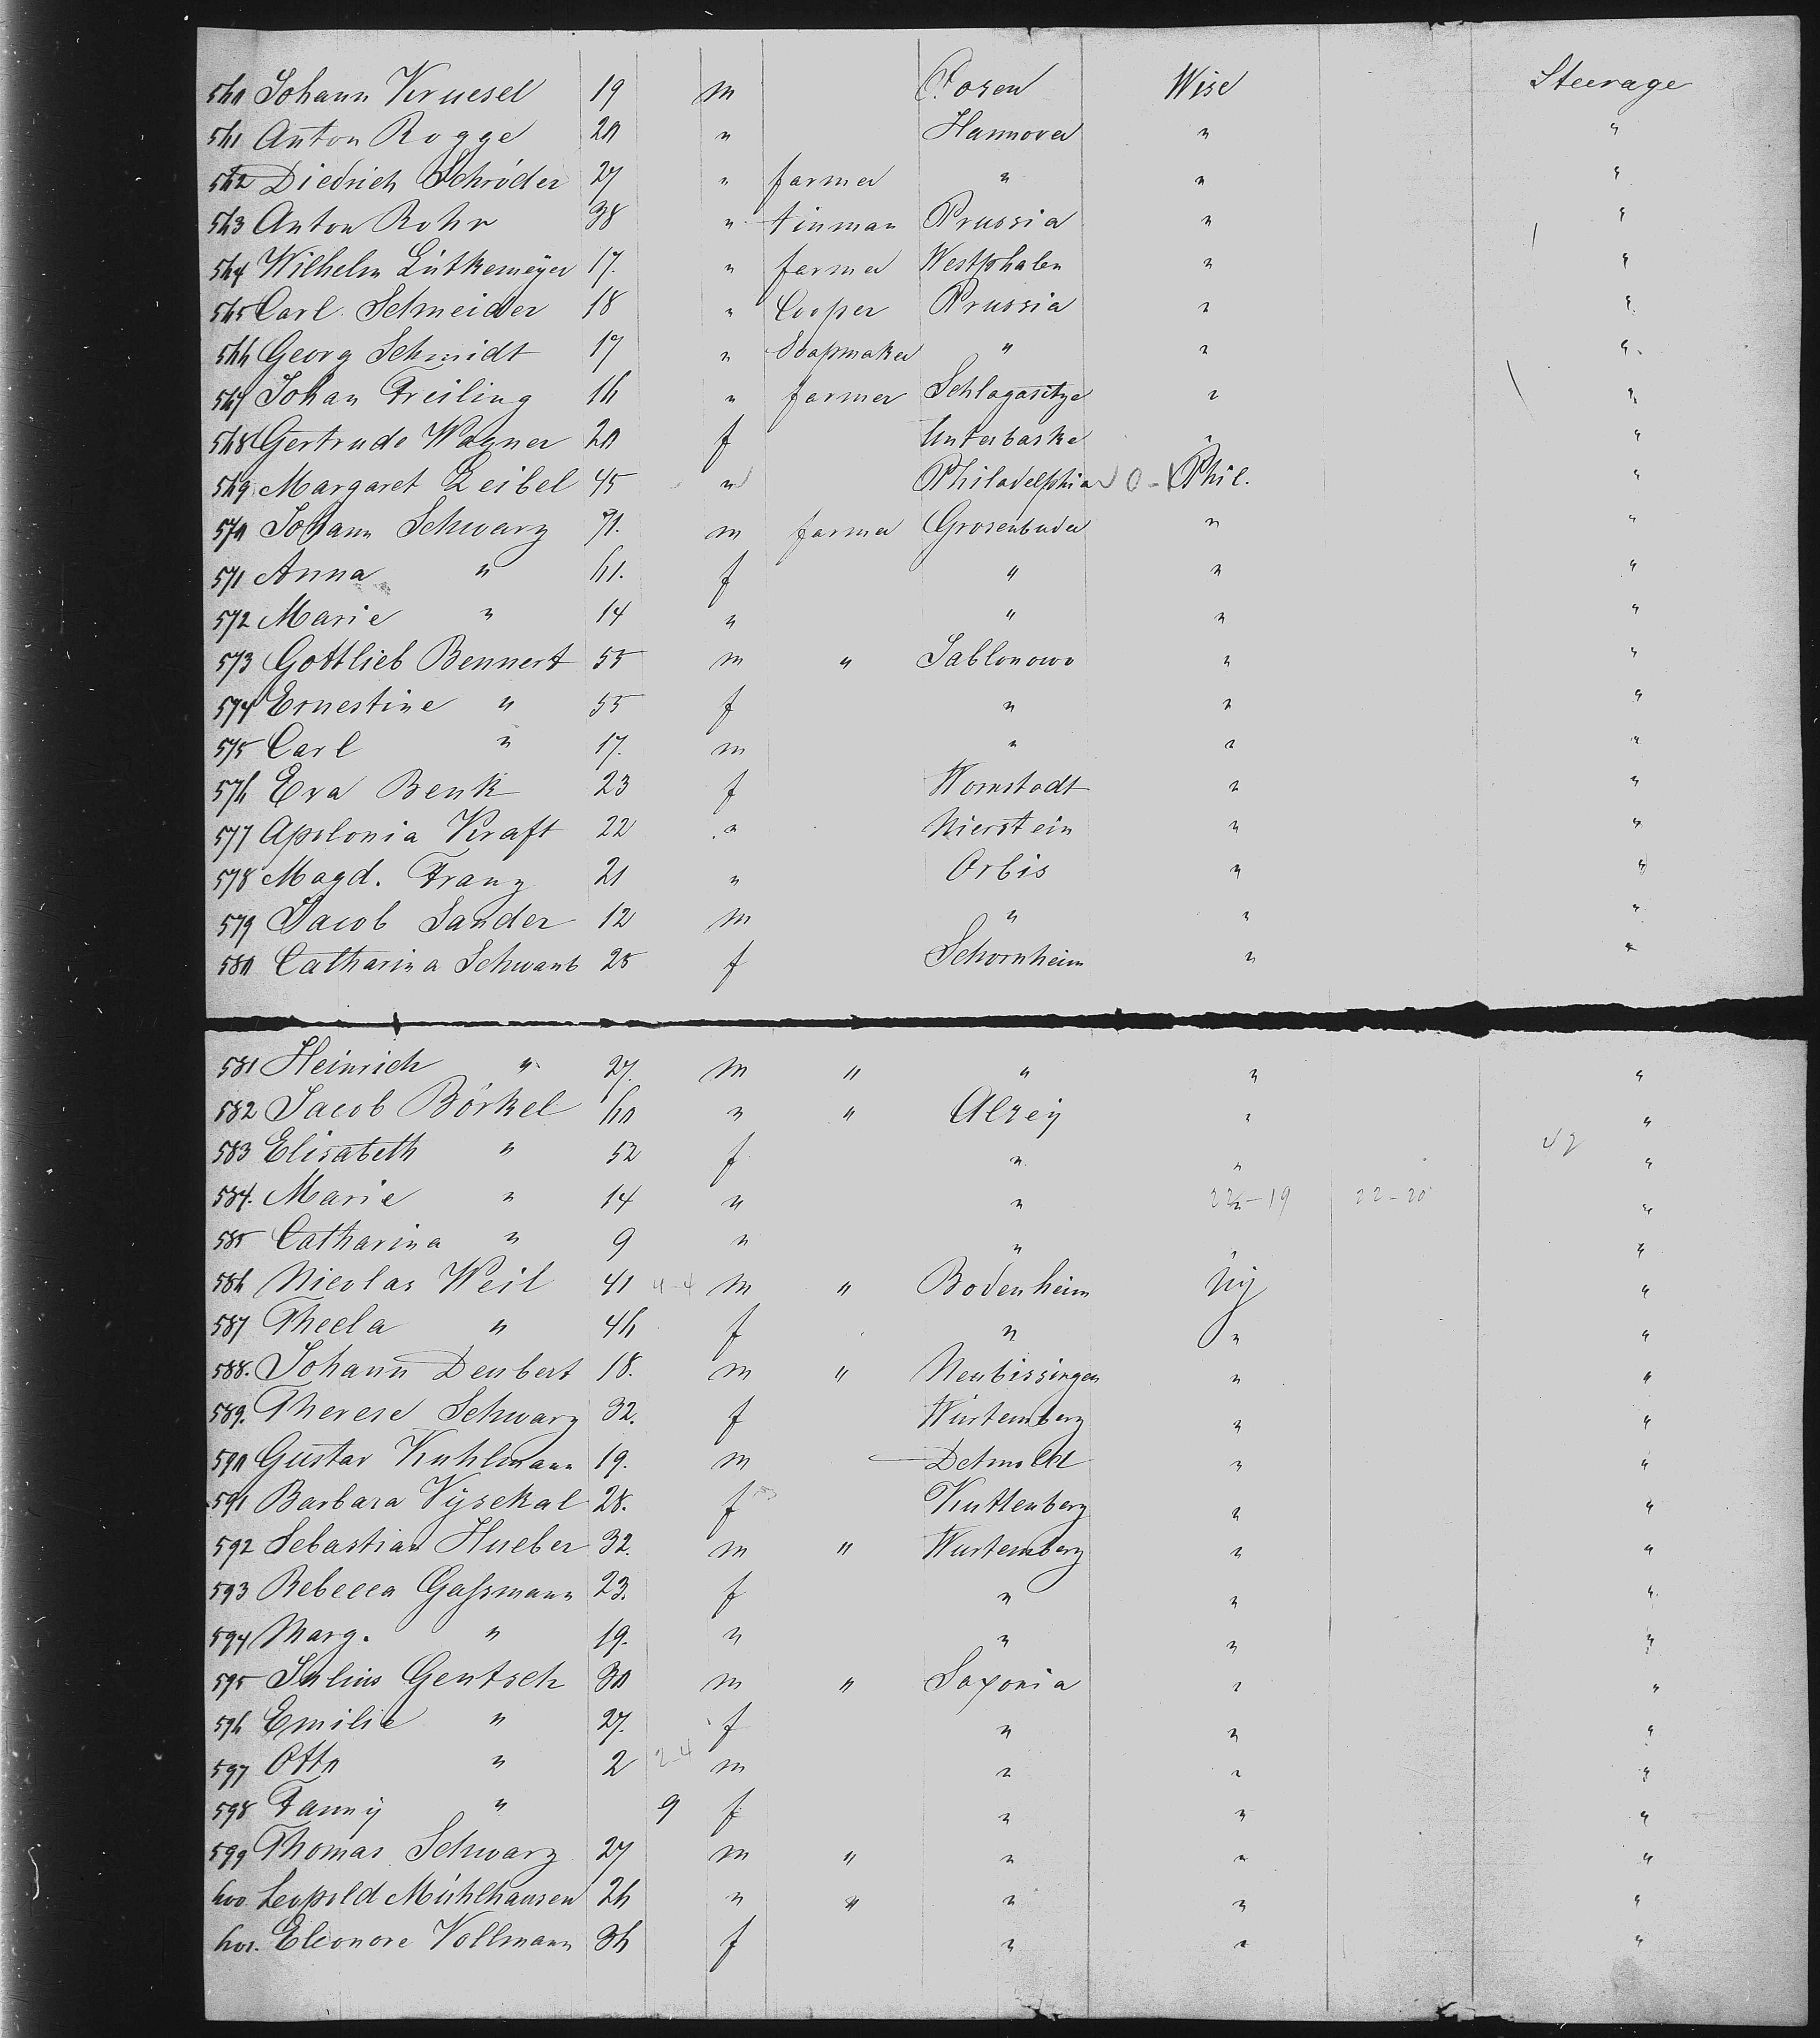 560 Johann Kruesel 19 m Posen Wise Steerage
561 Anton Rogge 20 " Hannover " "
562 Diedrich Schröder 27 " farmer " " "
563 Anton Rohr 38 " tinman Prussia " "
564 Wilhelm Lütkemeÿer 17. " farmer Westphalen " "
565 Carl Schneider 18 " Cooper Prussia " "
566 Georg Schmidt 17 " Soapmaker " " "
567 Johan Freiling 16 " farmer Schlagasitze " "
568 Gertrude Wagner 20 f Unterbaske " "
569 Margaret Leibel 45 " Philadelphia Phil. "
570 Johann Schwarz 71. m farmer Grosenbuder " "
571 Anna " 61. f " " "
572 Marie " 14 " " " "
573 Gottlieb Bennert 55 m " Jablonowo " "
574 Ernestine " 55 f " " "
575 Carl " 17. m " " "
576 Eva Benk 23 f Wornstadt " "
577 Apolonia Kraft 22 " Nierstein " "
578 Magd. Franz 21 " Orbis " "
579 Jacob Sander 12 m " " "
580 Catharina Schwanb 25 f Schornheim " "
581 Heinrich " 27. m " " " "
582 Jacob Börkel 60 " " Alzeÿ " "
583 Elisabeth " 52 f " " "
584. Marie " 14 " " " 22-19 22-20 "
585 Catharina " 9 " " " "
586 Nicolas Weil 41 4-4 m " Bodenheim Nÿ "
587 Thecla " 46 f " " "
588. Johann Deubert 18. m " Neubissingen " "
589. Therese Schwarz 32. f Würtemberg " "
590 Gustav Kuhlmann 19. m Detmold " "
591 Barbara Vÿsekal 28. f Kuttenberg " "
592 Sebastian Hueber 32. m " Wurtemberg " "
593 Rebecca Gaßmann 23. f " " "
594 Marg. " 19. " " " "
595 Julius Gentsch 30 m " Saxonia " "
596 Emilie " 27. f " " "
597 Otto " 2 2-4 m " " "
598 Fannÿ " 9 f " " "
599 Thomas Schwarz 27 m " " " "
600 Leopold Mühlhausen 26 " " " " "
601. Eleonore Vollmann 36 f " " "